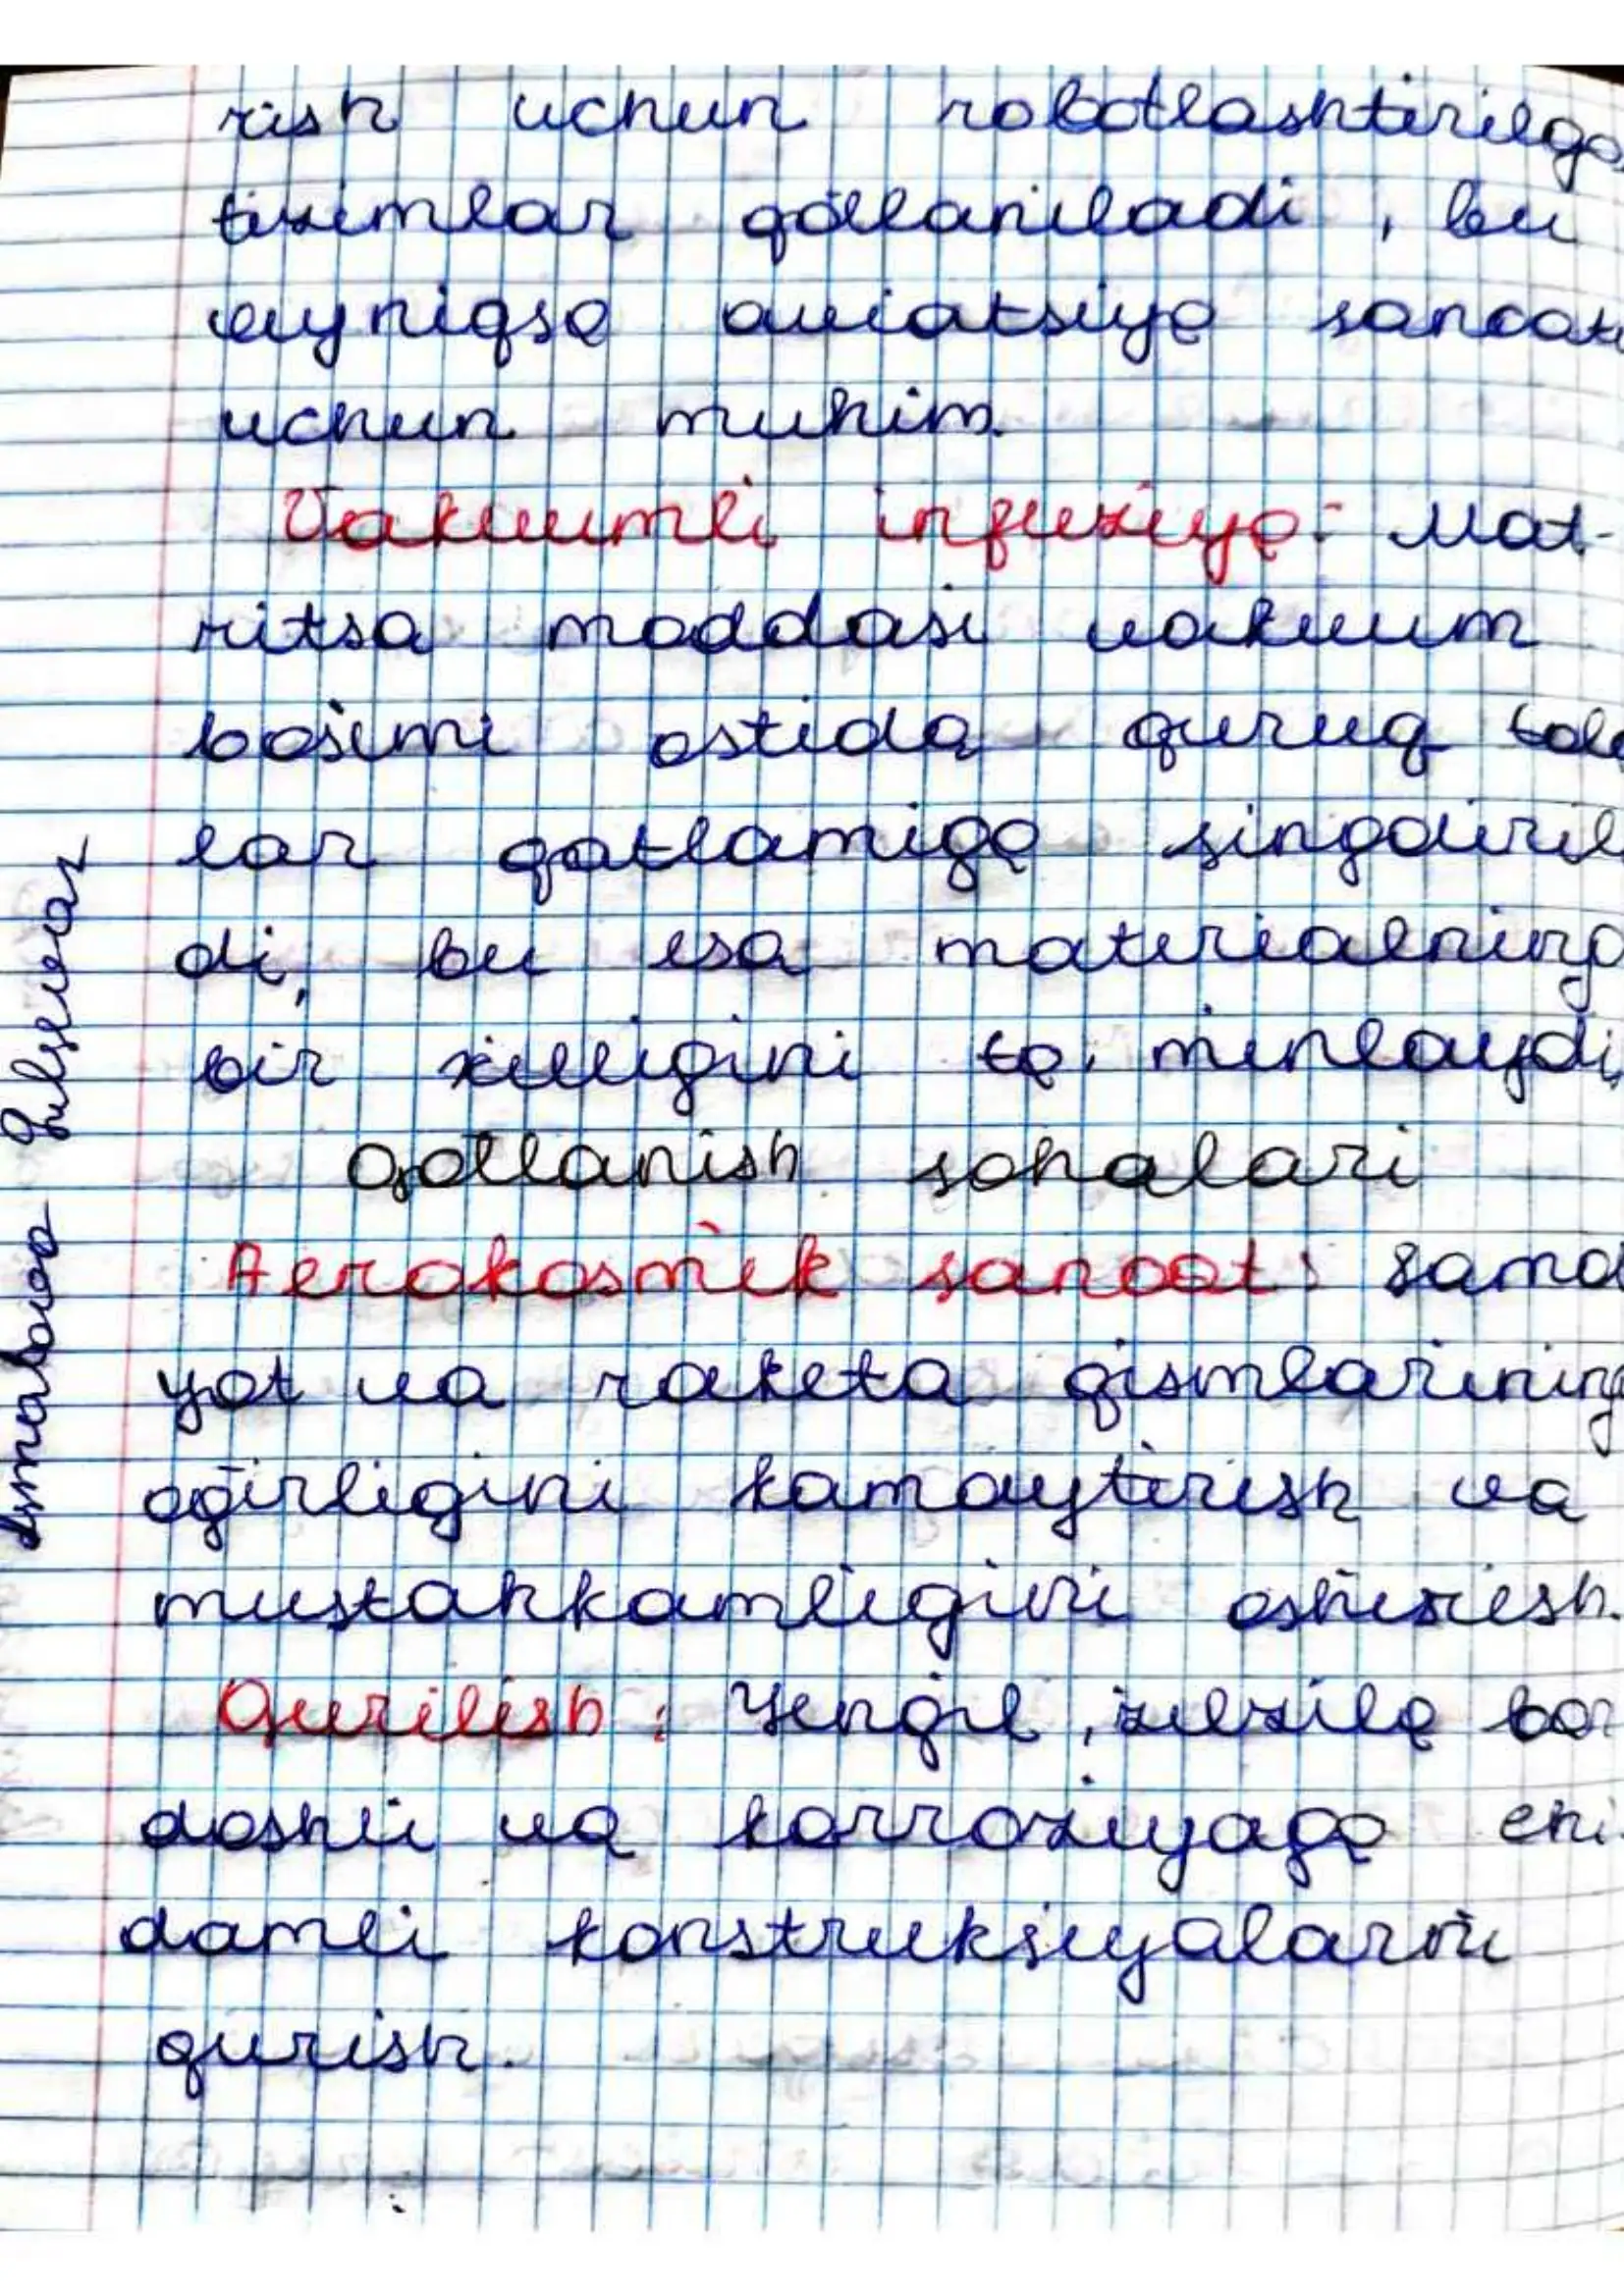 rish uchun robotlashtirilga
tizimlar qo'llaniladi, bu
ayniqsa aviatsiya sanoati
uchun muhim.
Vakuumli infuziya: Mat-
ritsa moddasi vakuum
bosimi ostida quruq tola
lar qatlamiga singdiril
di, bu esa materialning
bir xilligini ta'minlaydi.
Qo'llanish sohalari
Aerokosmik sanoat: Samo
yot va raketa qismlarining
og'irligini kamaytirish va
mustahkamligini oshirish.
Qurilish: Yengil, zilzila bar
doshli va korroziyaga chi
damli konstruksiyalarni
qurish.